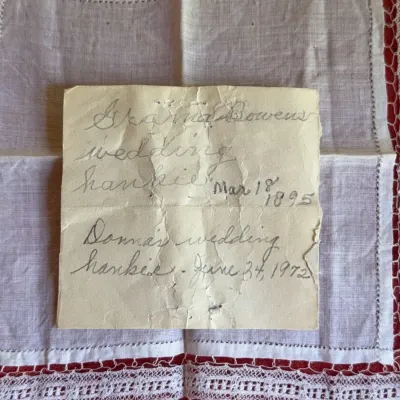 Grandma Bowens
wedding
hankie Mar 18
1895
Donna's wedding
hankie - June 24, 1972